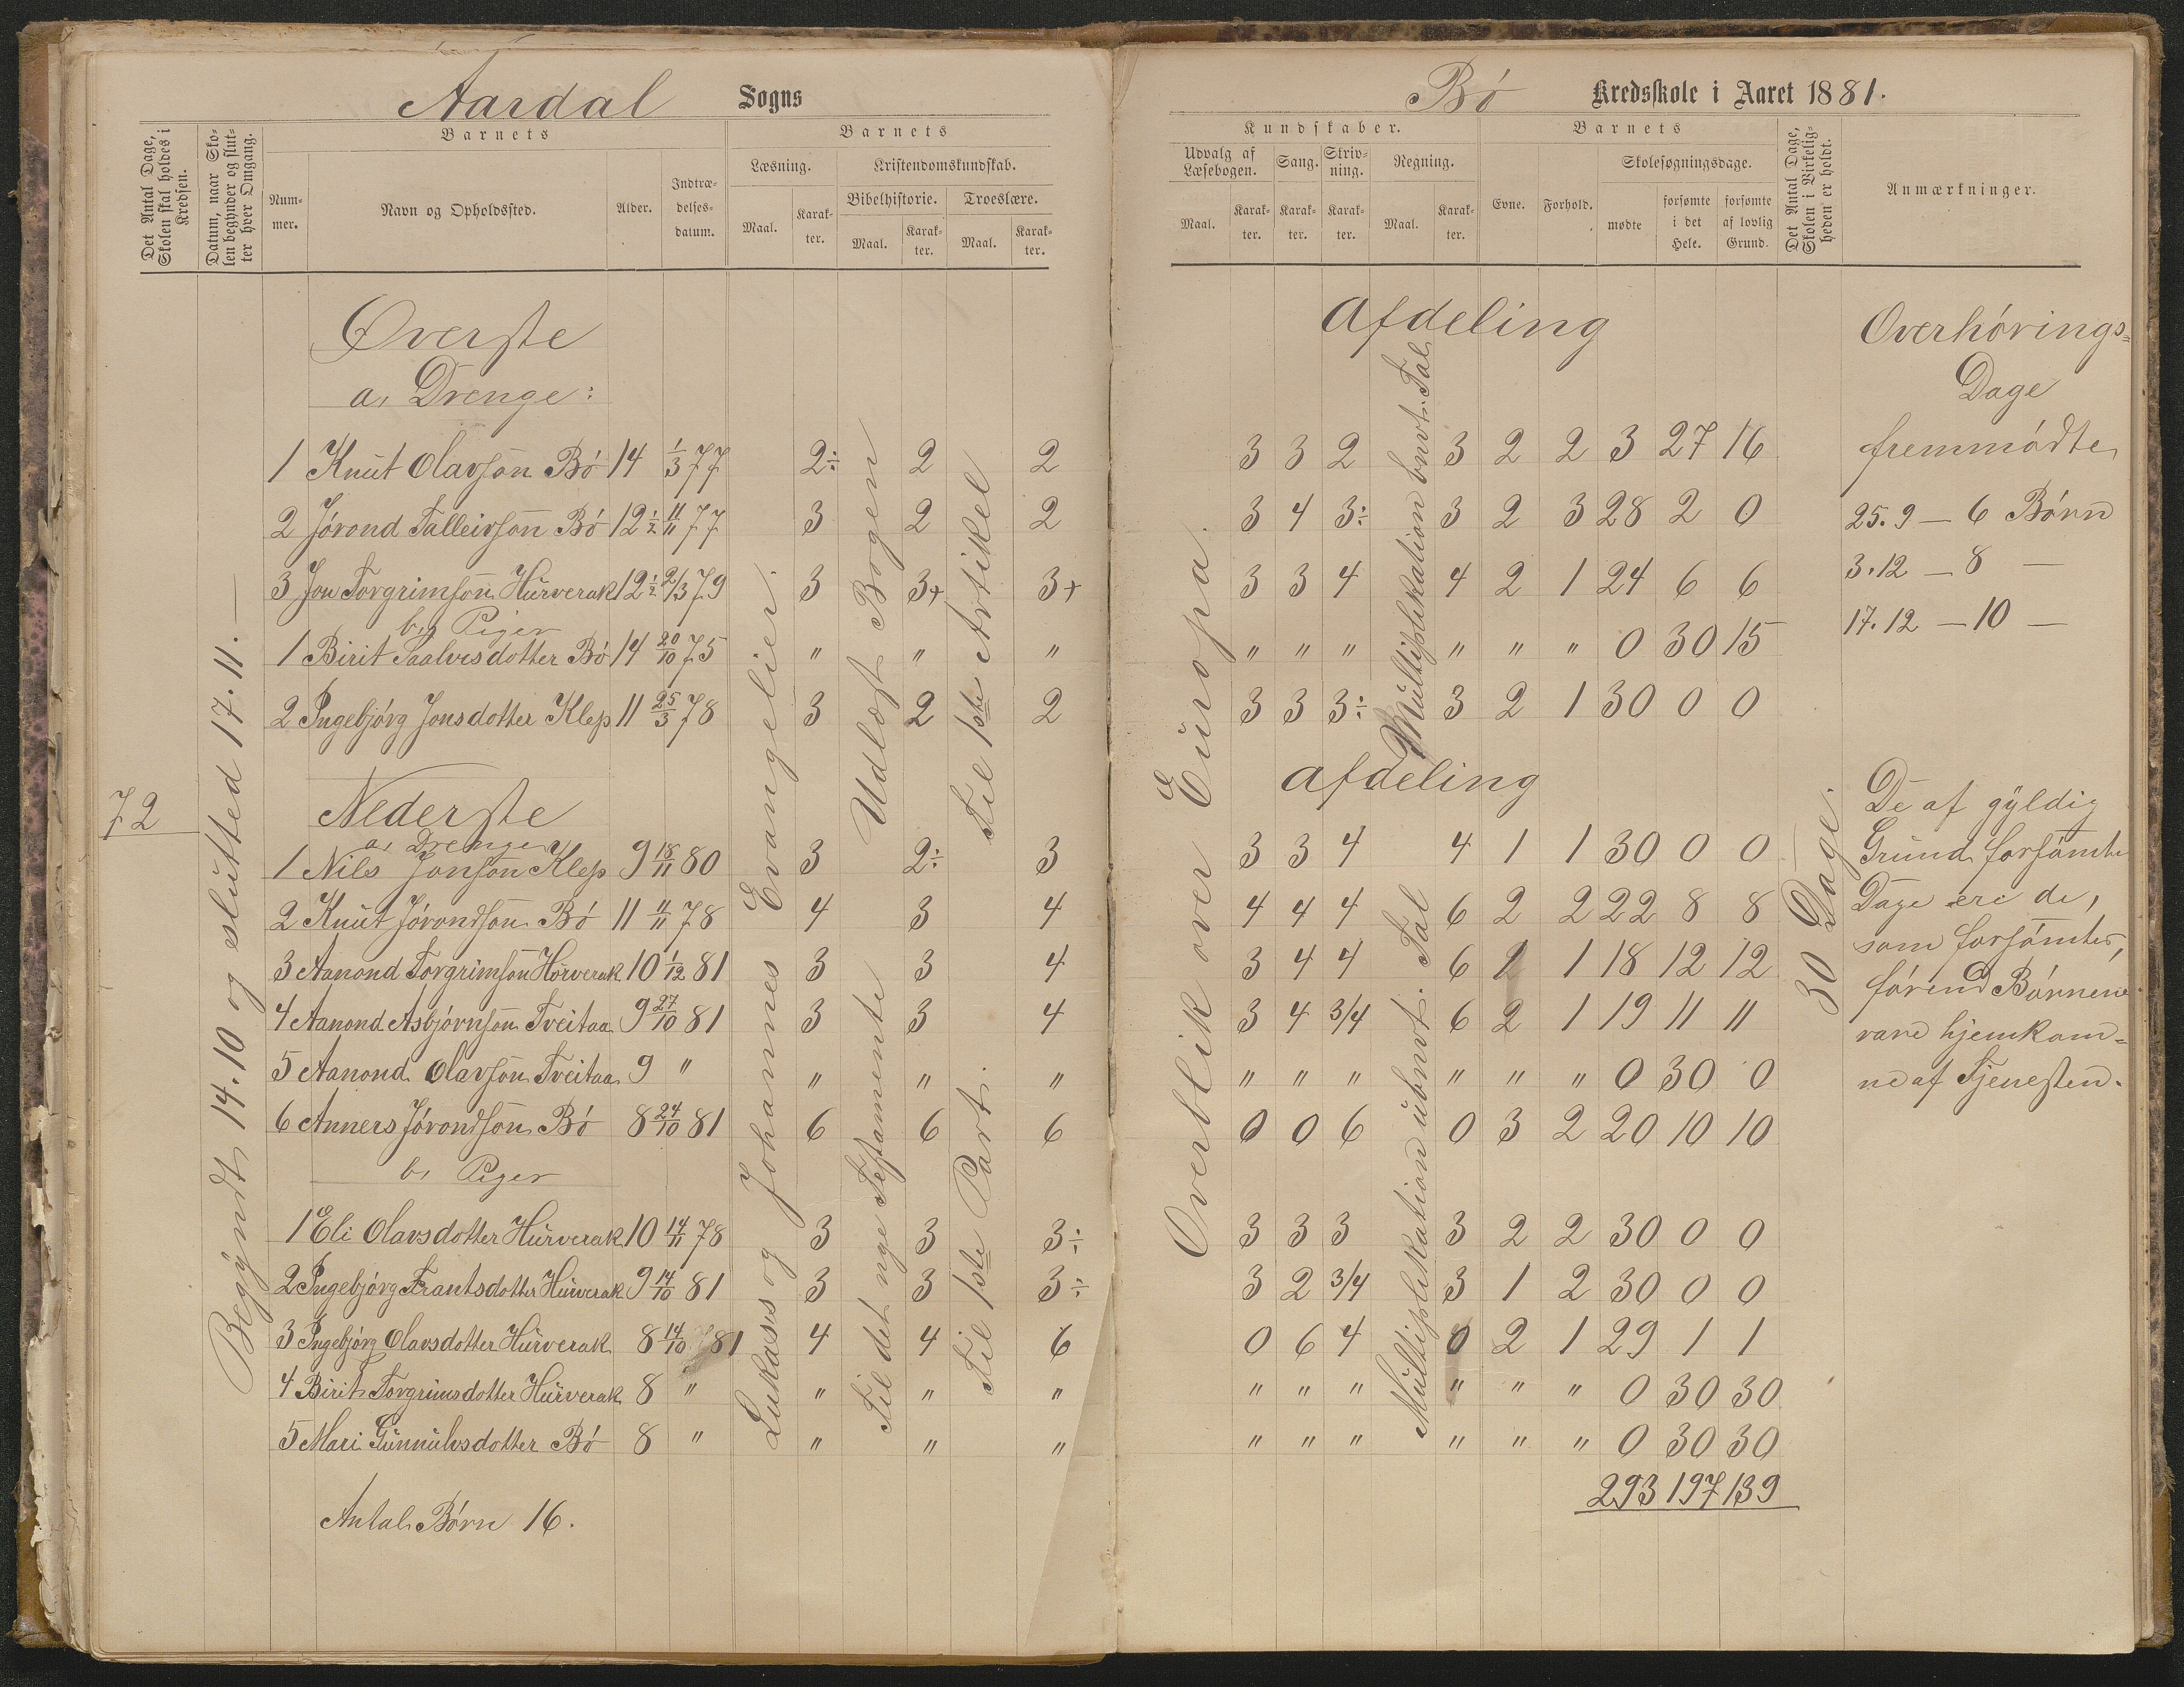 Aardal Sogns
Det Antal Dage, Skolen skal holdes i Kredsen.
Datum, naar Skolen begynder og slutter hver Omgang.
Barnets
Nummer.
Navn og Opholdssted.
Alder.
Indtrædelses-datum.
Barnets
Læsning.
Maal.
Karakter.
Kristendomskundskab.
Bibelhistorie.
Maal.
Karakter.
Troeslære.
Maal.
Karakter.
72
Begyndt 14.10 og slutted 17.11. —
Lukases og Johannes Evangelier.
Udlæst Bogen
Til det nye Testamente
Til 1ste Artikel
Til 1ste Part.
Øverste
a, Drenge:
1 Knut Olavson Bö 14 1/3 77 2÷ 2 2
2 Jörond Talleivson Bö 12 1/2 11/11 77 3 2 2
3 Jon Torgrimson Hurverak 12 1/2 2/3 79 3 3+ 3+
b, Piger
1 Birit Saalvesdotter Bö 14 20/10 75 " " "
2 Ingebjörg Jonsdotter Klep 11 25/3 78 3 2 2
Nederste
a, Drenge
1 Nils Jonson Klep 9 18/11 80 3 2÷ 3
2 Knut Jörondson Bö 11 11/11 78 4 3 4
3 Aanond Torgrimson Hörverak 10 1/12 81 3 3 4
4 Aanond Asbjörnson Tveitaa 9 27/10 81 3 3 4
5 Aanond Olavson Tveitaa 9 " " " "
6 Anners Jörondson Bö 8 24/10 81 6 6 6
b, Piger
1 Eli Olavsdotter Hurverak 10 14/11 78 3 3 3÷
2 Ingebjörg Frantsdotter Hurverak 9 14/10 81 3 3 3÷
3 Ingebjörg Olavsdotter Hurverak 8 14/10 81 4 4 6
4 Birit Torgrimsdotter Hurverak 8 " " " "
5 Mari Gunnulvsdotter Bö 8 " " " "
Antal Börn 16.
Bö Kredsskole i Aaret 1881.
Kundskaber.
Udvalg af Læsebogen.
Maal.
Karakter.
Sang.
Karakter.
Skrivning.
Karakter.
Regning.
Maal.
Karakter.
Barnets
Evne.
Forhold.
Skolesøgningsdage.
mødte
forsømte i det Hele.
forsømte af lovlig Grund.
Det Antal Dage, Skolen i Virkeligheden er holdt.
Anmærkninger.
Overblik over Europa.
Multiplikation bnvt. Tal
Multiplikation ubnvt. Tal
30 Dage.
Afdeling
3 3 2 3 2 2 3 27 16
3 4 3÷ 3 2 3 28 2 0
3 3 4 4 2 1 24 6 6
" " " " " " 0 30 15
3 3 3÷ 3 2 1 30 0 0
Afdeling
3 3 4 4 1 1 30 0 0
4 4 4 6 2 2 22 8 8
3 4 4 6 1 1 18 12 12
3 4 3/4 6 2 1 19 11 11
" " " " " " 0 30 0
0 0 6 0 3 2 20 10 10
3 3 3 3 2 2 30 0 0
3 2 3/4 3 1 2 30 0 0
0 6 4 0 2 1 29 1 1
" " " " " " 0 30 30
" " " " " " 0 30 30
293 197 139
Overhörings-
Dage
fremmödte
25.9 — 6 Börn
3.12 — 8 —
17.12 — 10 —
De af gyldig
Grund forsömte
Dage ere de,
som forsömtes,
förend Börnene
vare hjemkom-
ne af Tjenesten.